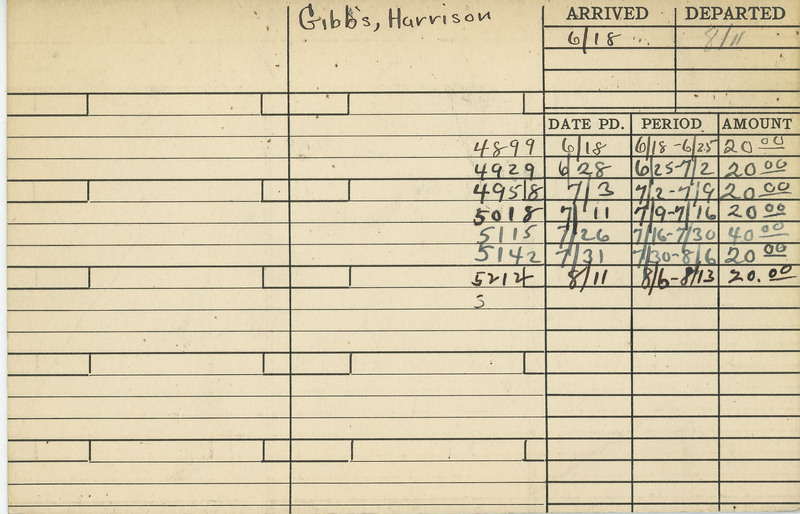 Gibbs, Harrison
ARRIVED DEPARTED
6/18 8/11
DATE PD. PERIOD AMOUNT
4899 6/18 6/18-6/25 20 00
4929 6/28 6/25-7/2 20 00
4958 7/3 7/2-7/9 20 00
5018 7/11 7/9-7/16 20 00
5115 7/26 7/16-7/30 40 00
5142 7/31 7/30-8/6 20 00
5212 8/11 8/6-8/13 20.00